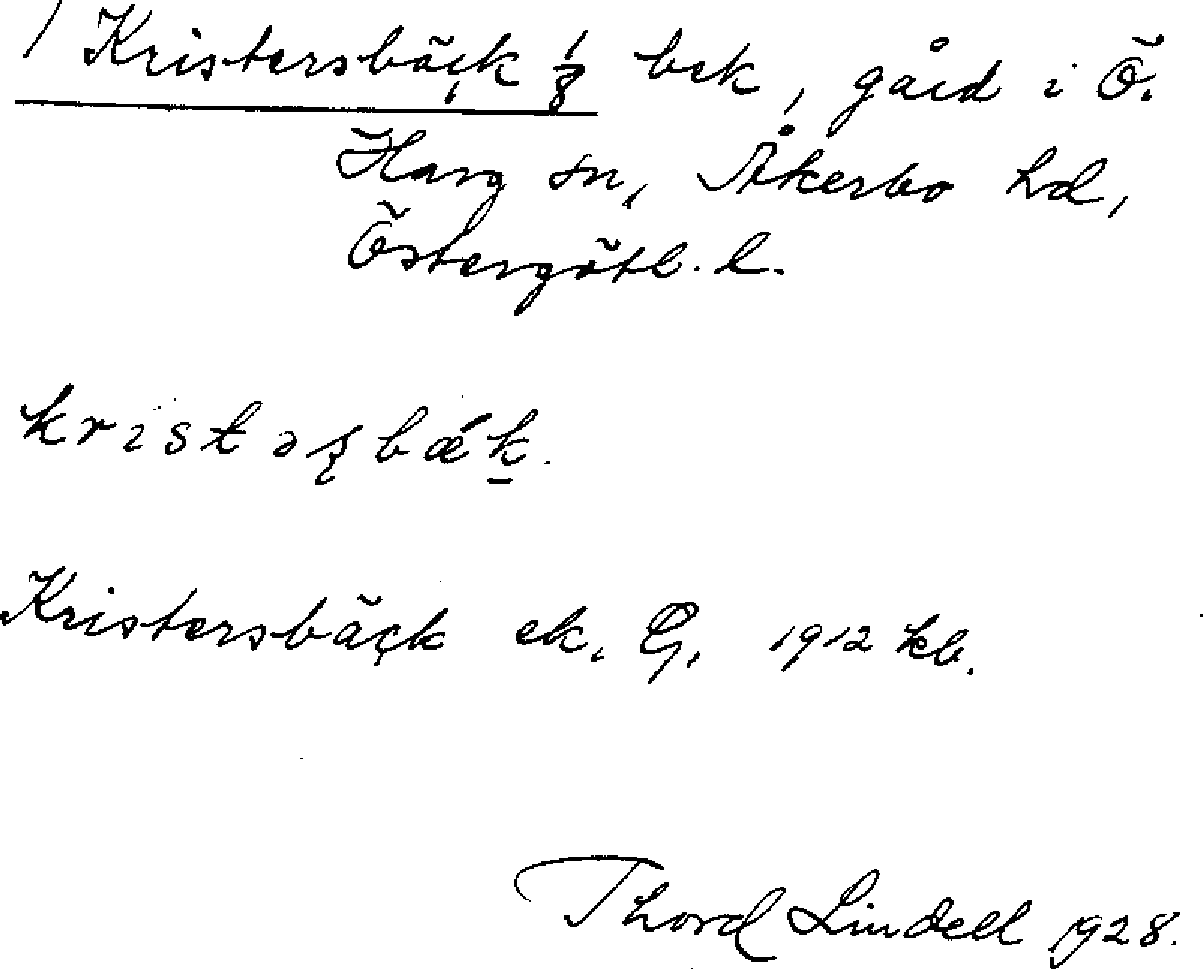 Kristersbäck 1/8 bek, gård i Ö.
Harg sn, Åkerbo hd,
Östergötl. l.
kristəʂbǽk.
Kristersbäck ek. G, 1912 kb.
Thord Lindell 1928.